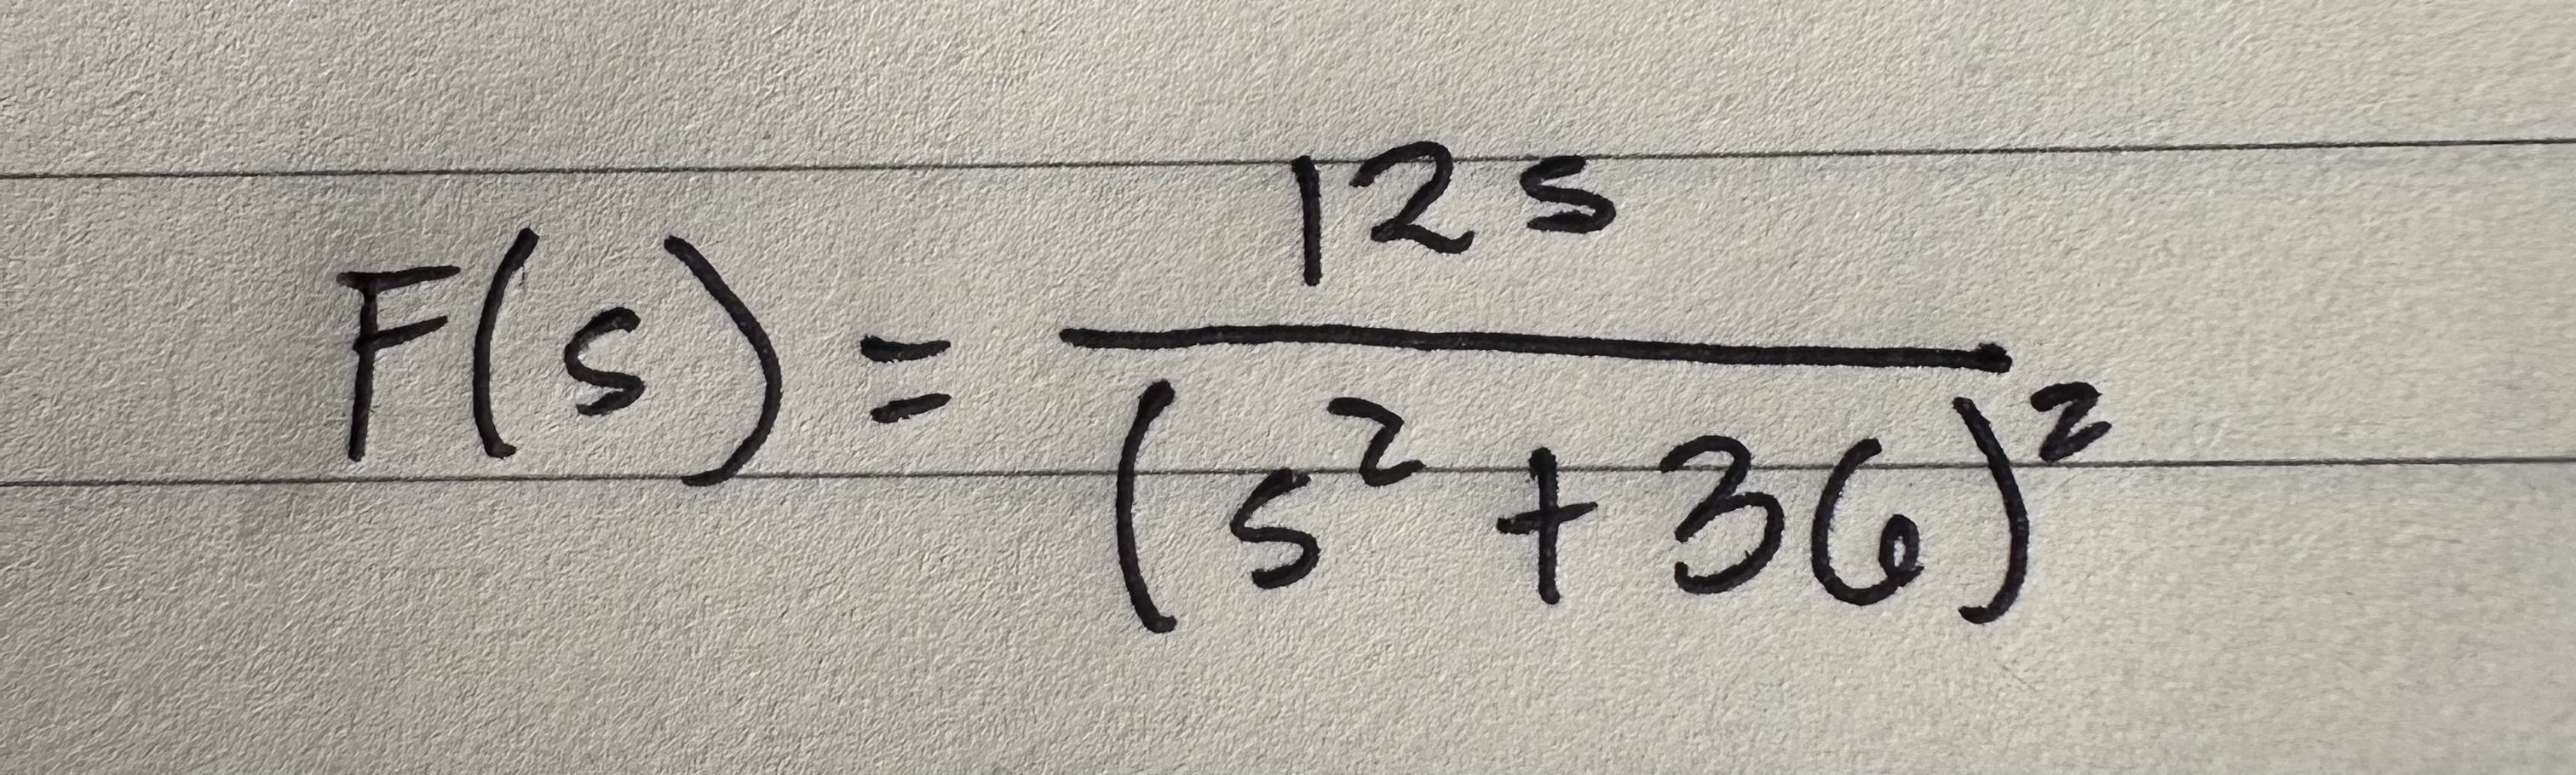 F(s) = 12s / (s² + 36)²